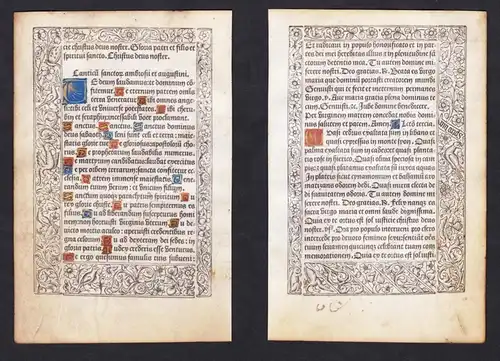 cte christus deus noster. Gloria patri et filio et
spiritui sancto. Christus deus noster.
Canticum sanctorum ambrosii et augustini.
Te deum laudamus: te dominum co
fitemur. Te eternum patrem omnis
terra veneratur. Tibi omnes ange
li: tibi celi et universe potestates. Tibi
cherubin et seraphin: incessabili voce proclamant.
Sanctus. Sanctus. Sanctus dominus
deus sabaoth. Pleni sunt celi et terra: maie
statis glorie tue. Te gloriosus apostolorum
chorus. Te prophetarum laudabilis numerus.
Te martyrum candidatus: laudat exercitus
Te per orbem terrarum: sancta confitetur
ecclesia. Patrem immense maiestatis.
randum tuum verum: et unicum filium.
Sanctum quoque paraclytum spiritum. Tu
rex glorie christe. Tu patris sempiternus es
filius. Tu ad liberandum suscepturus homi
nem: non horruisti virginis uterum. Tu de
victo mortis aculeo: aperuisti credentibus
regna celorum. Tu ad dexteram dei sedes: in
gloria patris. Iudex crederis esse venturus.
Te ergo quesumus famulis tuis subveni:
Et radicavi in populo honorificato et in par
tes dei mei hereditas illius: et in plenitudine san
ctorum detentio mea. Tu autem domine miserere
nostri. Deo gratias. Beata es virgo
maria que dominum portasti creatorem mundi.
Genuisti qui te fecit et in eternum permanes
virgo. Ave maria gratia plena dominus te
cum. Genuisti. Iube domine benedicere.
Per virginem matrem concedat nobis dominus
salutem et pacem. Amen. Lectio tercia.
Quasi cedrus exaltata sum in libano et
quasi cypressus in monte syon. Quasi
palma exaltata sum in cades et quasi planta
tio rose in hierico. Quasi oliva speciosa
in campis et quasi platanus exaltata sum
in plateis sicut cynamomum et balsamum
aromatizans odorem dedi. Quasi mirrha electa
dedi suavitatem odoris. Tu autem domine
miserere nostri. Deo gratias. Felix namque es
sacra virgo maria et omni laude dignissima.
Quia ex te ortus est sol iusticie christus deus
noster. Ora pro populo interveni pro clero
intercede pro devoto femineo sexu sentiant
omnes tuum iuvamen quicunque celebrant tuam com
memorationem. Quia ex te ortus est sol iusti